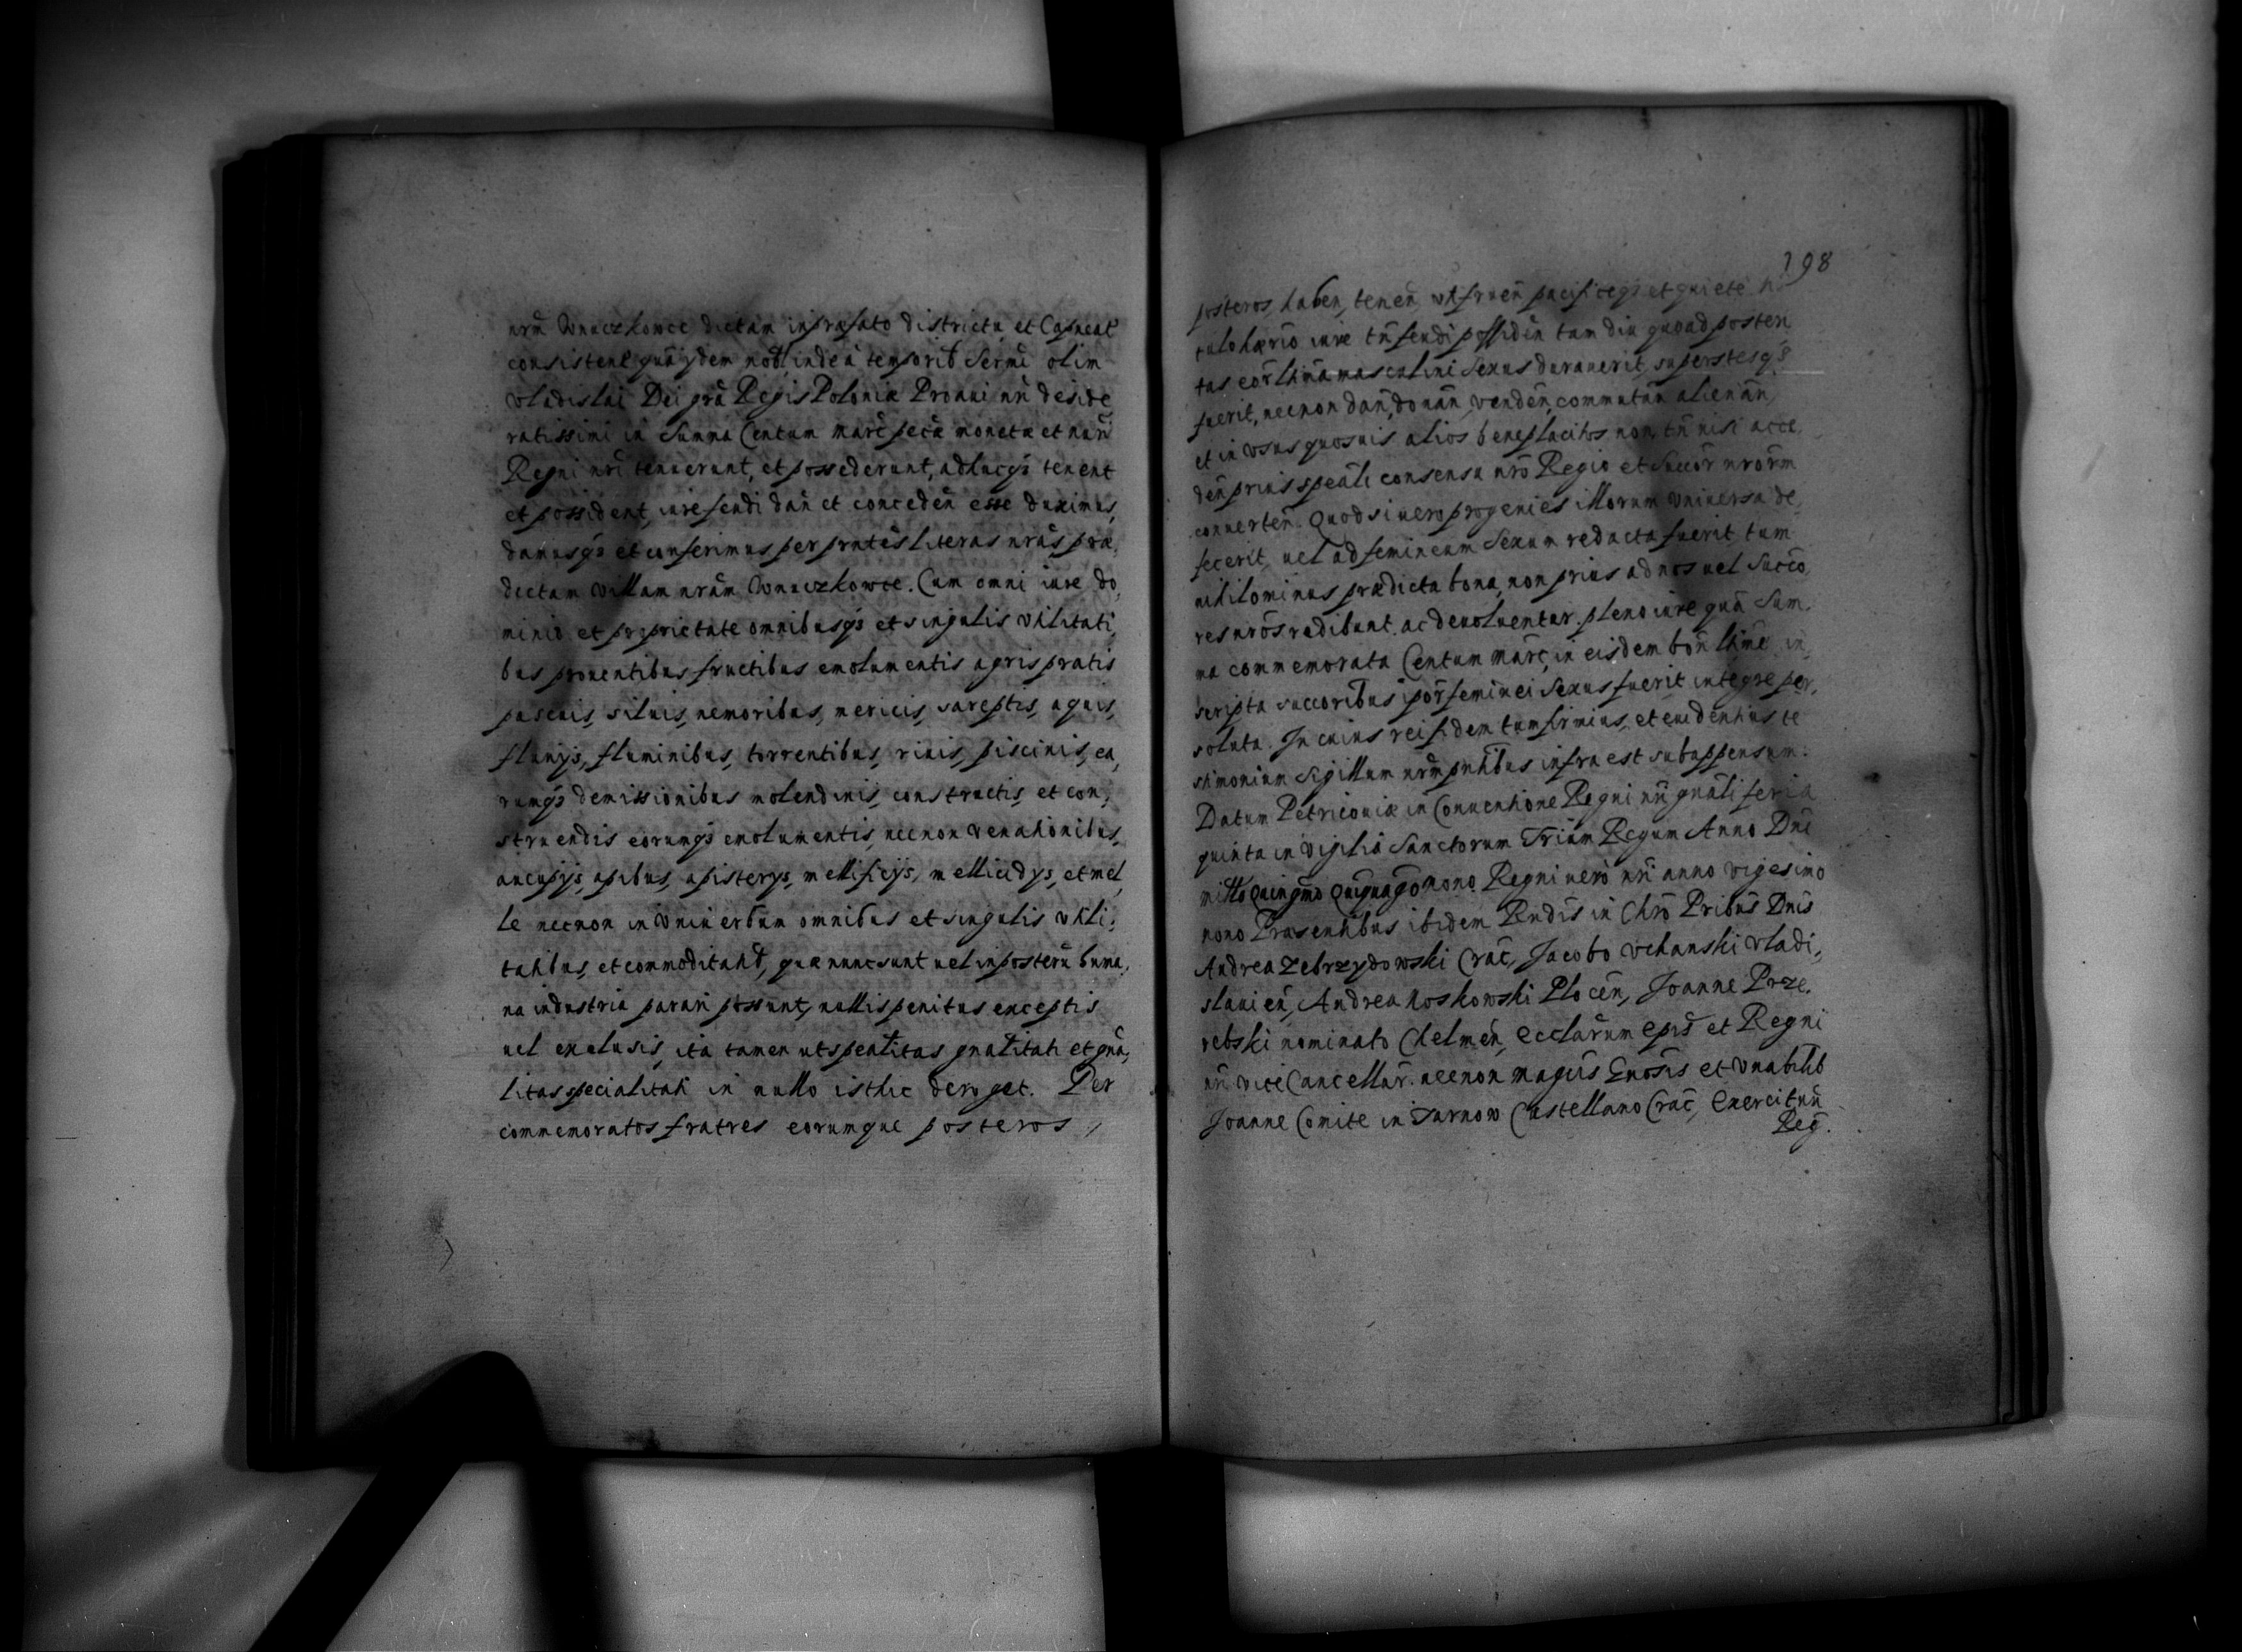 nrm̃ Wnuczkowce dictam in præfato districtu et Capneal̃
consisteñ quã ijdem nobl̃ indeã temporib̃ Sermĩ olim
Vladislai Dei grã Regis Poloniæ Proaui nr̃i deside
ratissimi in Summa Centum marc̃ pecũ monetæ et nuñ
Regni nr̃i tenuerunt, et possederunt, adhucq3 tenent
et possident, iure feudi dañ et concedeñ esse duximus,
damusq3 et conferimus per pñtes literas nr̃as præ,
dictam Villam nr̃am Wnuczkowce. Cum omni iure do,
minio et proprietate omnibusq3 et singulis vtilitati,
bus prouentibus fructibus emolumentis agris pratis
pascuis, siluis, nemoribus, mericis, sareptis, aquis,
fluuijs, fluminibus, torrentibus, riuis, piscinis, ea,
rumq3 demissionibus molendinis, constructis, et con,
struendis eorumq3 emolumentis, necnon venationibus,
aucupijs, apibus, apisterijs, mellificijs, mellicidijs, et mel,
le necnon in vniuersum omnibus et singulis vtili,
tatibus, et commoditatib̃, quæ nunc sunt uel in posterũ huma,
na industria parari possunt, nullis penitus exceptis
uel exclusis, ita tamen ut speal̃itas gnal̃itati et gñã,
litas specialitati in nullo isthic deroget. Per
commemoratos fratres eorumque posteros,
198
posteros, habeñ, teneñ vtifrueñ pacificeq3 et quiete
tulo hærio iure tñ feudi possideñ tam diu quoad posteri
tas eor̃ lt̃ima masculini Sexus durauerit, superstesq3
fuerit, necnon dañ, donañ, vendeñ, commutañ alienañ,
et in vsus quosuis alios beneplacitos non tñ nisi acce,
deñ prius speãli consensu nr̃o Regio et Succor̃ nror̃m
conuerteñ. Quod si uero progenies illorum vniuersa de,
fecerit, uel ad femineum Sexum redacta fuerit, tum
nihilominus prædicta bona, non prius ad nos uel Succo,
res nr̃os redibunt, ac deuoluentur pleno iure quã Sum,
ma commemorata Centum marc̃, in eisdem boñ lt̃ime in,
scripta succoribus ipor̃ feminei Sexus fuerit integre per,
soluta. In cuius rei fidem tum firmius, et euidentius te
stimonium Sigillum nrm̃ pñtibus infra est subappensum.
Datum Petricouiæ in Conuentione Regni nr̃i gnãli feria
quinta in vigilia Sanctorum Trium Regum Anno Dñi
millõ Quingmõ Quiquagõ nono. Regni uero nr̃i anno vigesimo
nono Præsentibus ibidem Rñdis in Chrõ Pribus Dñis
Andrea Zebrzydowski Crac̃, Jacobo Vchanski Vladi,
slauieñ, Andrea Noskowski Ploceñ, Joanne Prze,
rebski nominato Chelmeñ, Ecclarũm epis̃ et Regni
nr̃i vice Cancellar̃. necnon magcis̃ Gnosis̃ et Vnabilib̃
Joanne Comite in Tarnow Castellano Crac̃, Exercituũ
Reg̃.